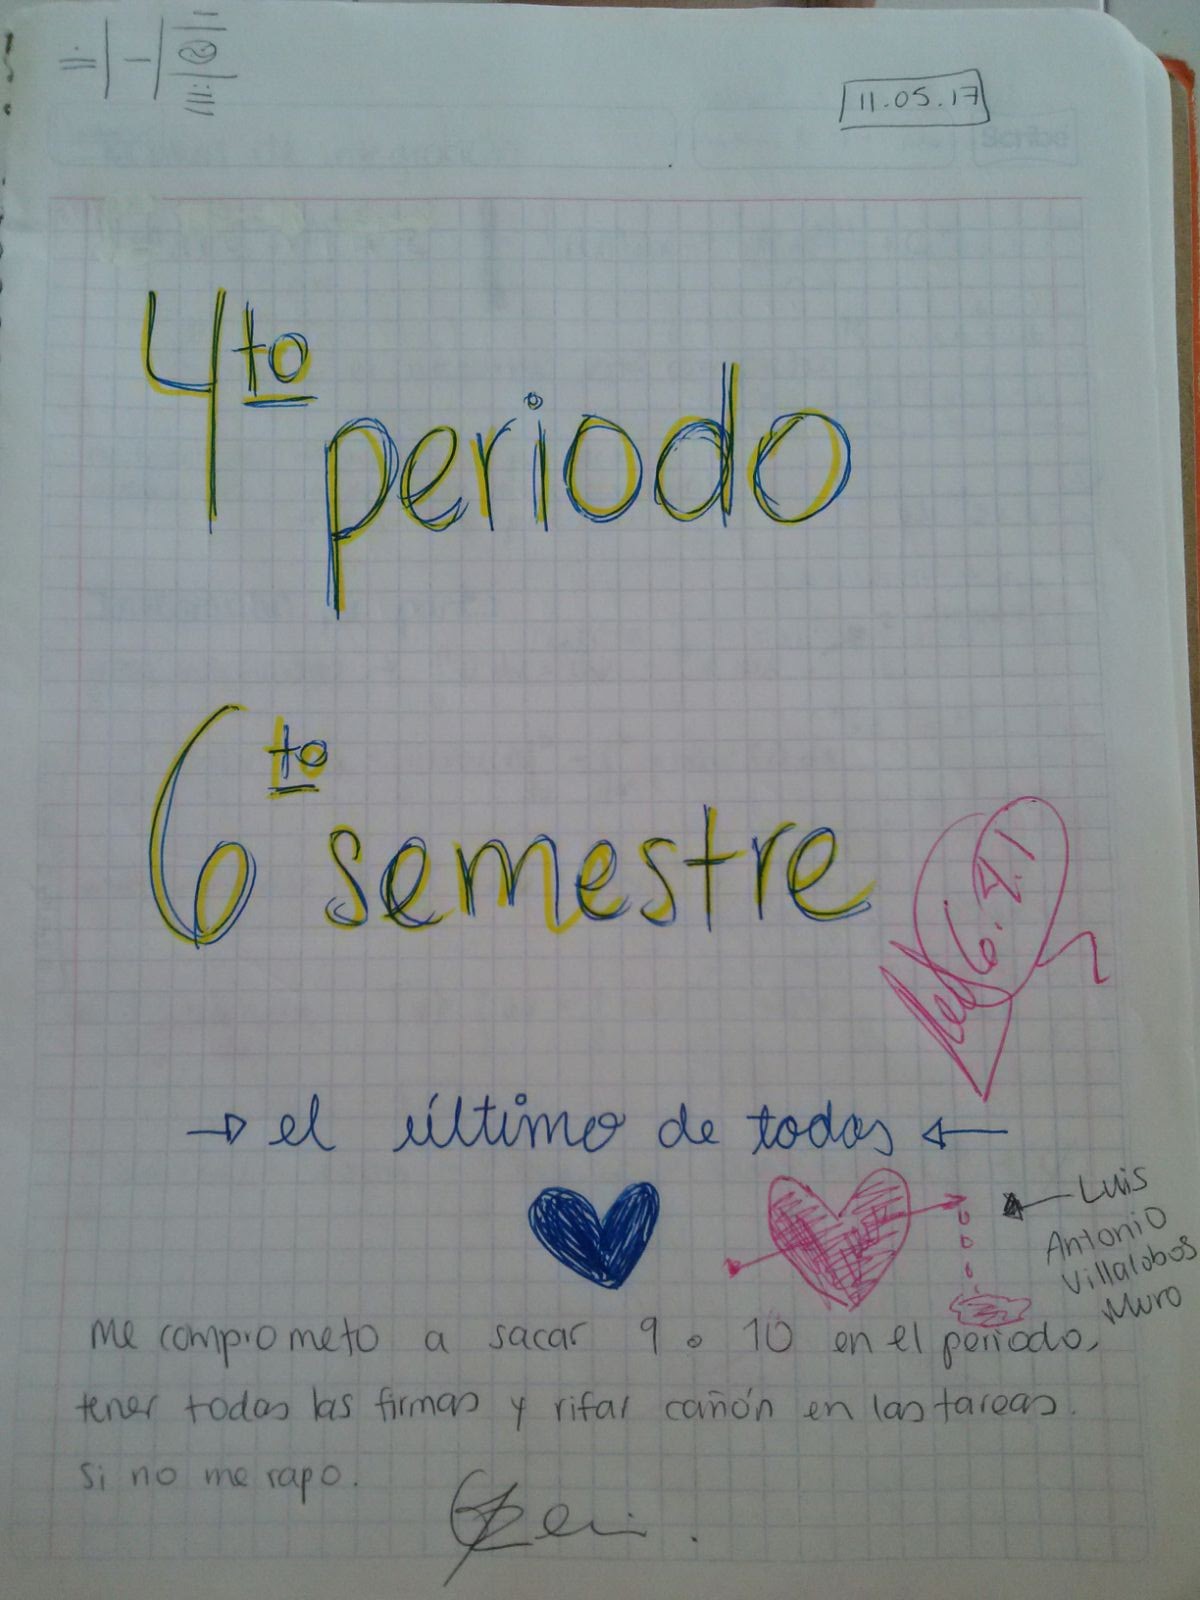 11.05.17
Scribe
4to
periodo
6to
semestre
6.4.1
el último de todos
Luis
Antonio
Villalobos
Muro
me comprometo a sacar 9 o 10 en el periodo,
tener todas las firmas y rifar cañón en las tareas.
si no me rapo.